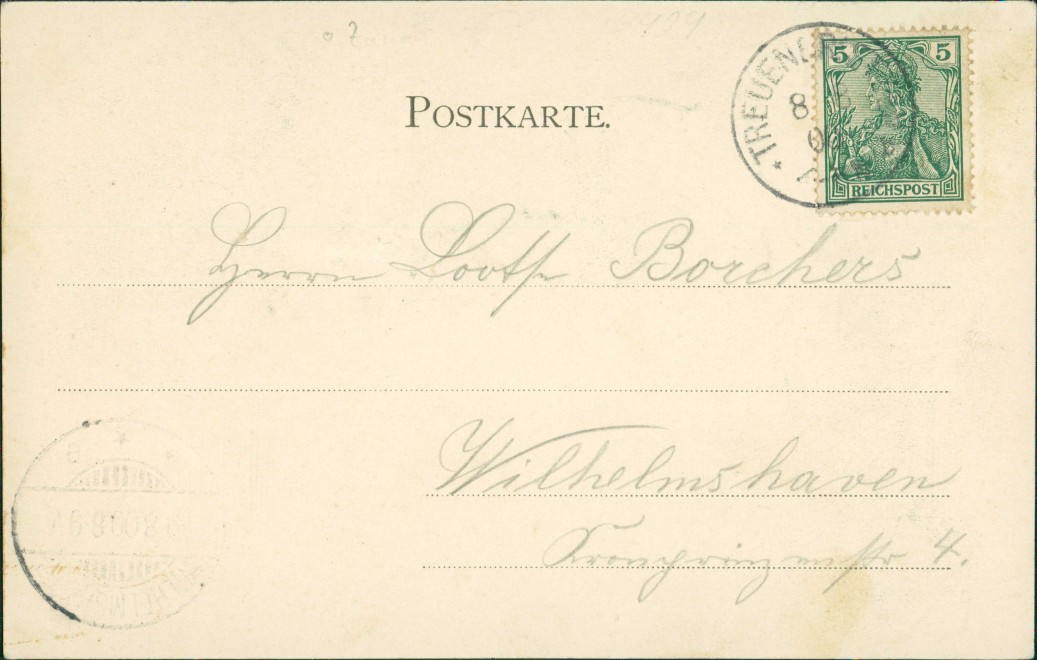 POSTKARTE.
TREUENB
8
00
5 5
REICHSPOST
Herrn Lootse Borchers
Wilhelmshaven
Kronprinzenstr 4.